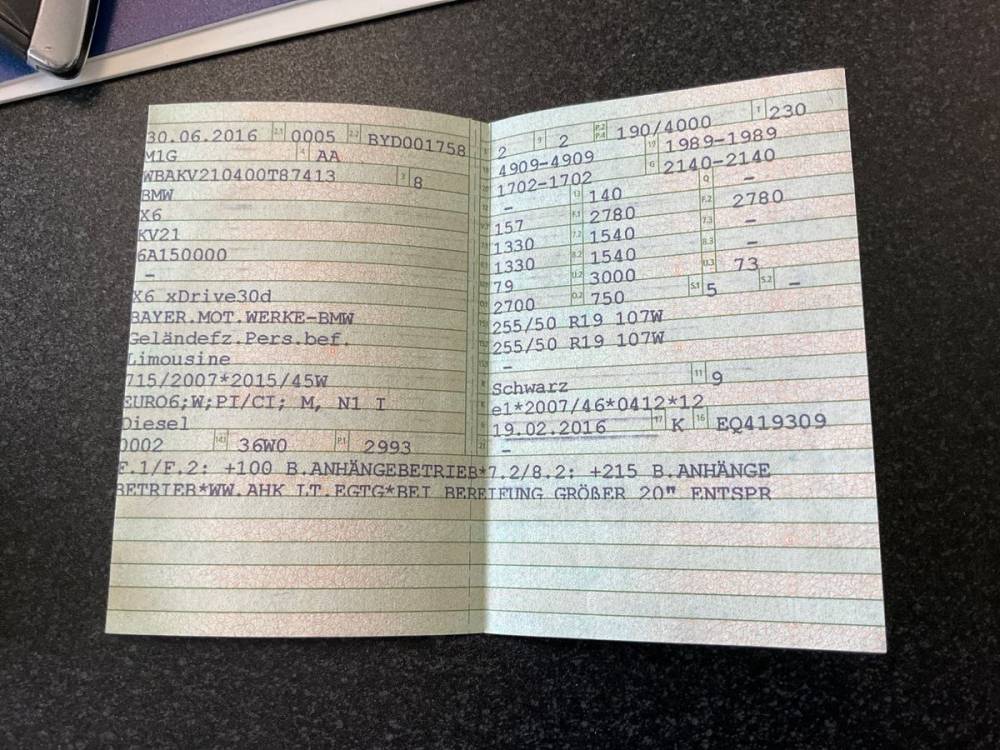 30.06.2016 2.1 0005 2.2 BYD001758
M1G 4 AA
WBAKV210400T87413 3 8
BMW
X6
KV21
6A150000
–
X6 xDrive30d
BAYER.MOT.WERKE-BMW
Geländefz.Pers.bef.
Limousine
715/2007*2015/45W
EURO6;W;PI/CI; M, N1 I
Diesel
0002 14.1 36W0 P.1 2993
2 9 2 P.2 P.4 190/4000 T 230
4909-4909 19 1989-1989
1702-1702 G 2140-2140
– 13 140 Q –
157 F.1 2780 F.2 2780
1330 7.2 1540 7.3 –
1330 8.2 1540 8.3 –
79 U.2 3000 U.3 73
2700 O.2 750 S.1 5 S.2 –
255/50 R19 107W
255/50 R19 107W
–
Schwarz 11 9
e1*2007/46*0412*12
19.02.2016 17 K 16 EQ419309
–
F.1/F.2: +100 B.ANHÄNGEBETRIEB*7.2/8.2: +215 B.ANHÄNGE
BETRIEB*WW.AHK LT.EGTG*BEI BEREIFUNG GRÖßER 20" ENTSPR